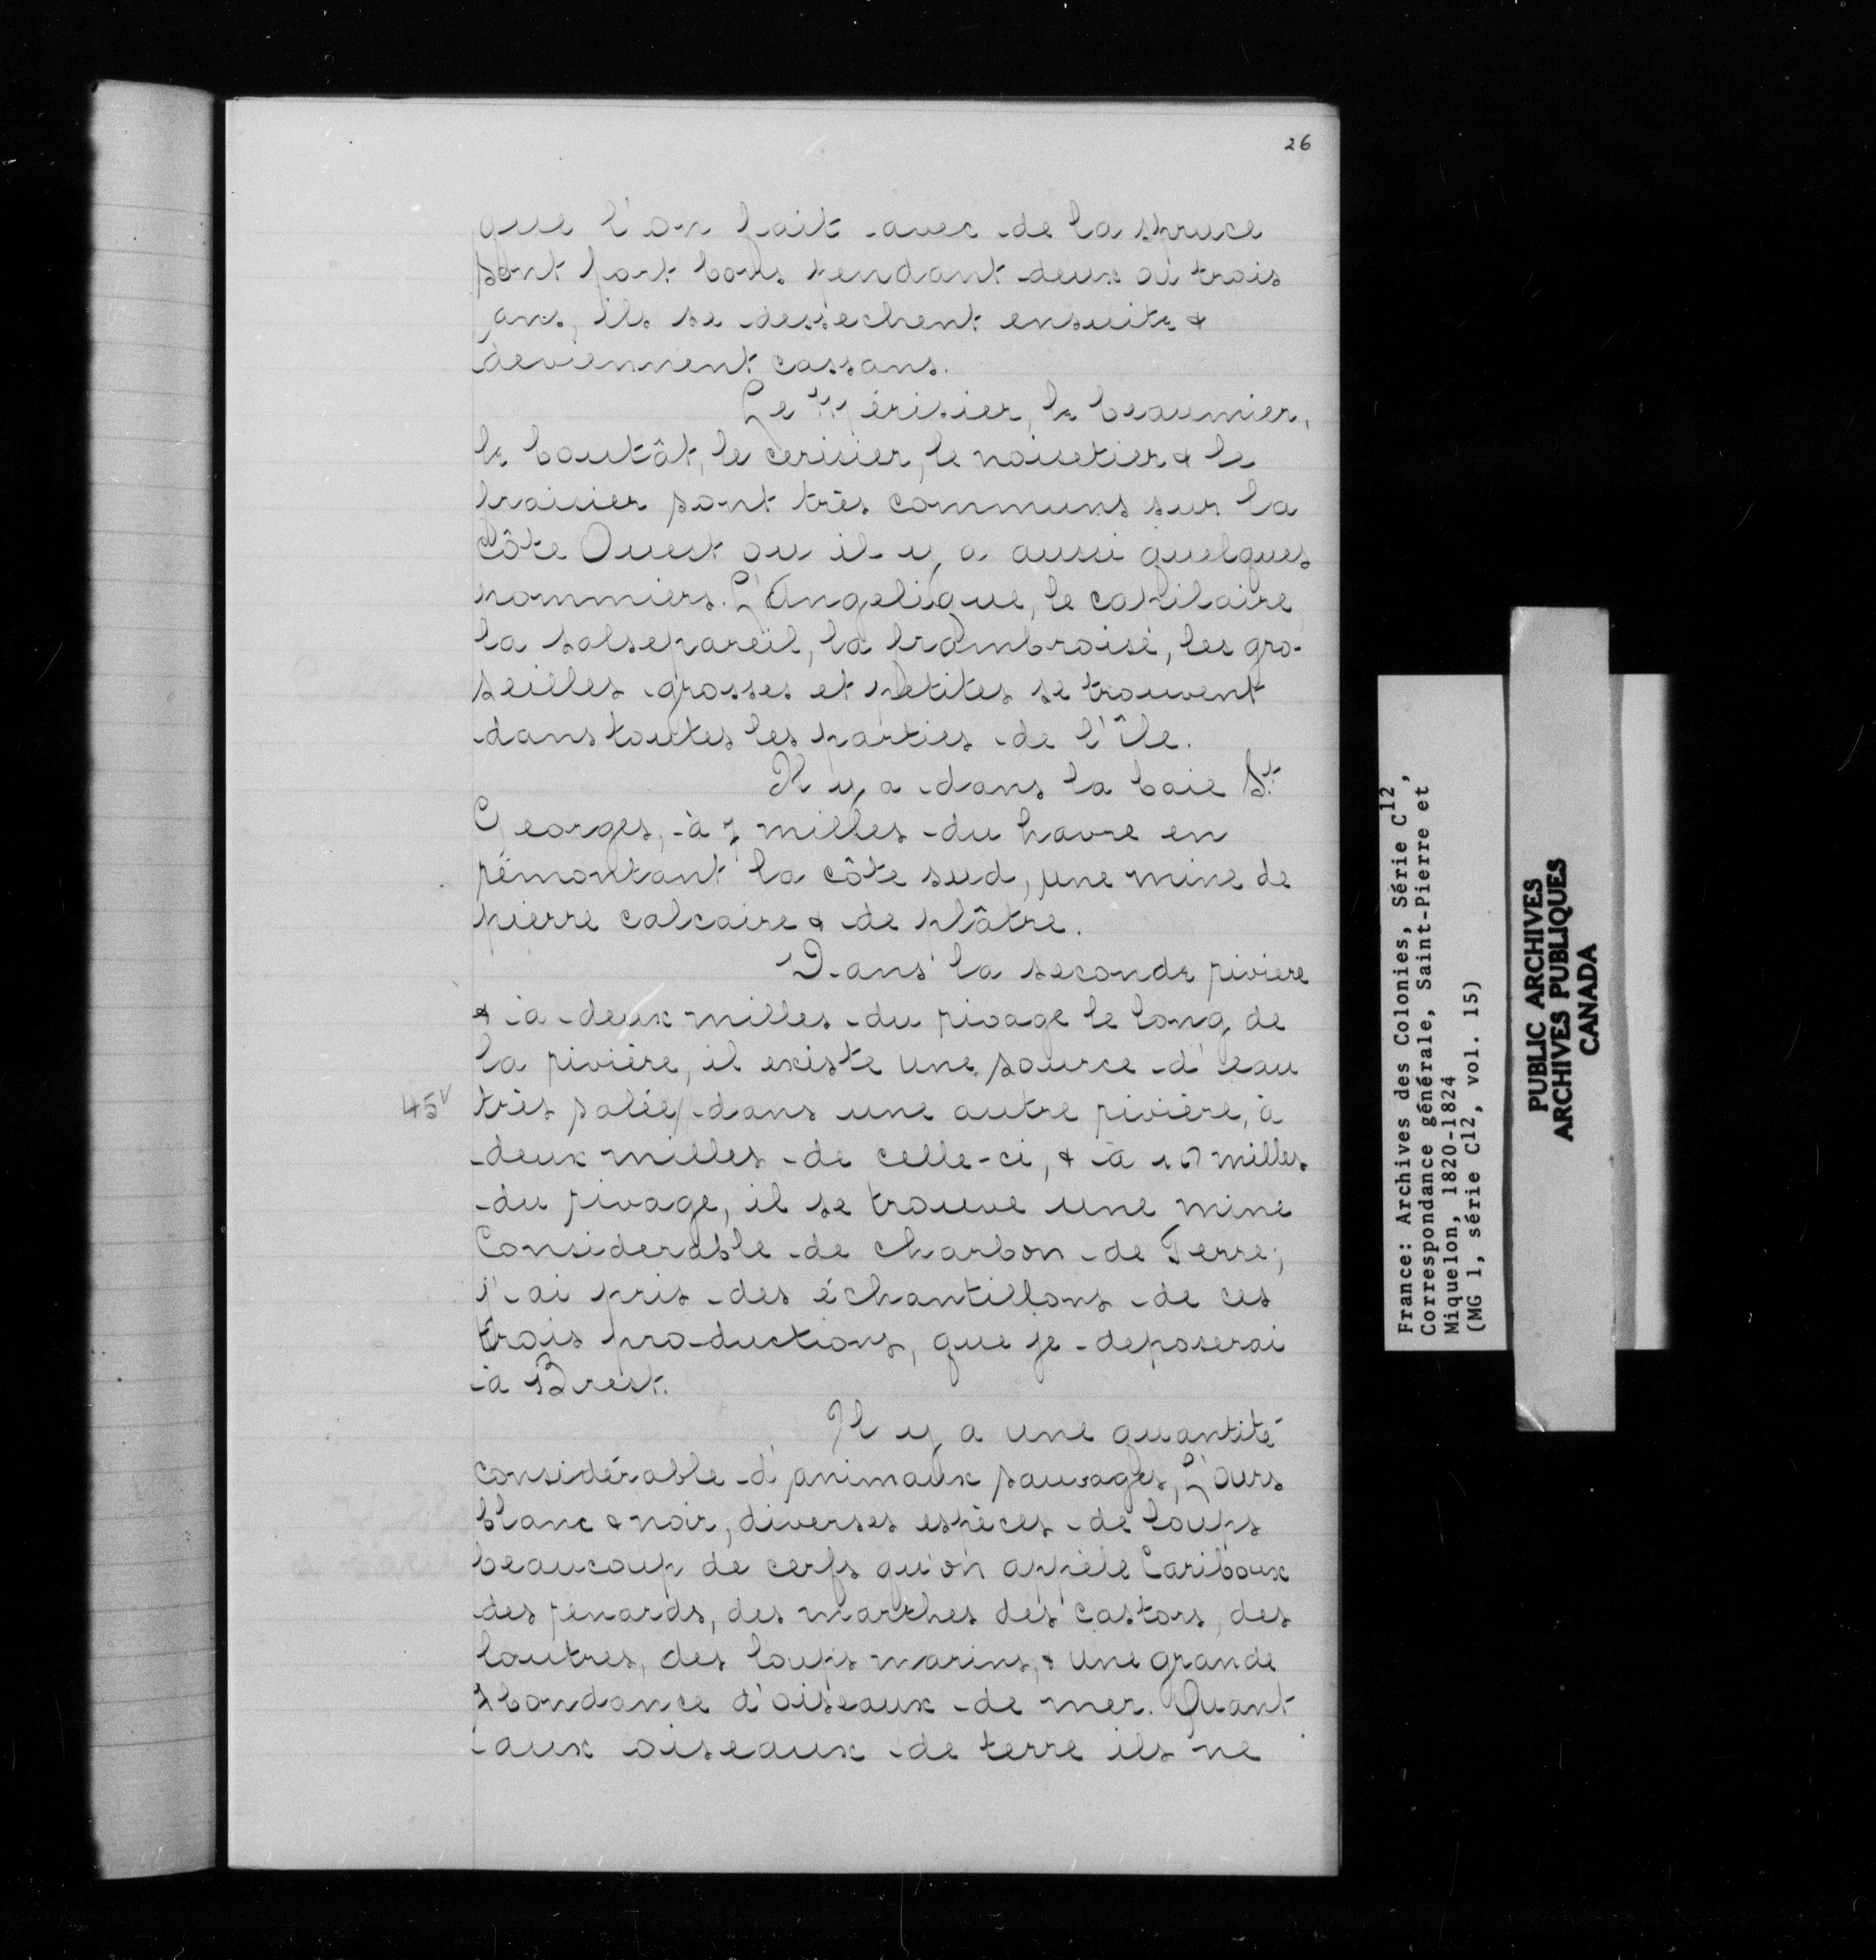 26
que l'on fait avec de la spruce
sont fort bons pendant deux ou trois
ans, ils se dessechent ensuite &
deviennent cassans.
Le Mérisier, le beaumier,
le boutât, le cerisier, le noisetier & le
fraisier sont très communs sur la
Côte Ouest ou il y a aussi quelques
pommiers. L'Angelique, le capilaire
la salsepareil, la frambroise, les gro-
seilles grosses et petites se trouvent
dans toutes les parties de l'île.
Il y a dans la baie St.
Georges, à 7 milles du havre en
rémontant la côte sud, une mine de
pierre calcaire & de plâtre.
Dans la seconde riviere
& à deux milles du rivage le long de
la rivière, il existe une source d'eau
45v très salée, dans une autre rivière, à
deux milles de celle-ci, & à 10 milles
du rivage, il se trouve une mine
Considerable de charbon de Terre;
j'ai pris des échantillons de ces
trois productions, que je deposerai
à Brest.
Il y a une quantité
considérable d'animaux sauvages, L'ours
blanc & noir, diverses espèces de loups
beaucoup de cerfs qu'on appèle Cariboux
des renards, des marthes des castors, des
loutres, des loups marins, & une grande
Abondance d'oiseaux de mer. Quant
aux oiseaux de terre ils ne
France: Archives des Colonies, Série C12,
Correspondance générale, Saint-Pierre et
Miquelon, 1820-1824
(MG 1, série C12, vol. 15)
PUBLIC ARCHIVES
ARCHIVES PUBLIQUES
CANADA